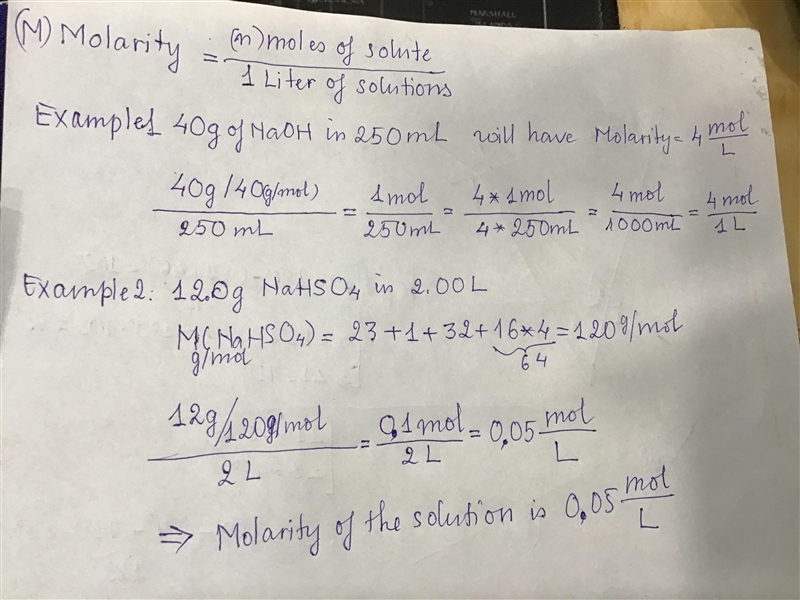 (M) Molarity = (n) moles of solute / 1 Liter of solutions
Example1 40g of NaOH in 250mL will have Molarity = 4 mol/L
40g/40(g/mol) / 250 mL = 1mol / 250mL = 4*1mol / 4*250mL = 4mol / 1000mL = 4 mol / 1L
Example 2: 12.0g NaHSO4 in 2.00L
M(NaHSO4) = 23+1+32+16*4 = 120g/mol
g/mol 64
12g/120g/mol / 2L = 0,1mol / 2L = 0,05 mol/L
⇒ Molarity of the solution is 0,05 mol/L